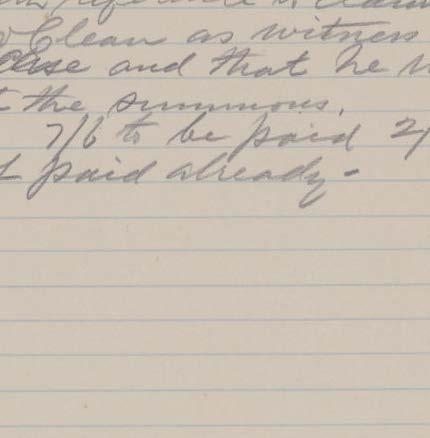 reference
Clean as witness
Case and that he
the summons.
7/6 to be paid 2/
paid already -